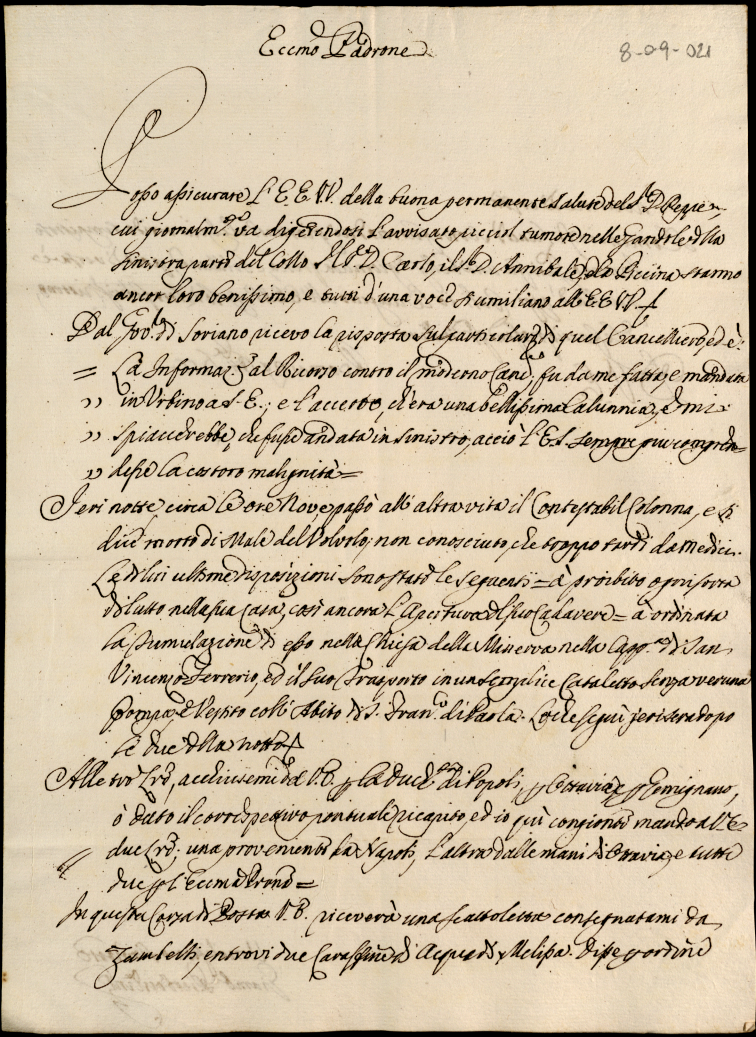 Eccmo Padrone
8-09-021
Posso assicurare l'E.E.VV. della buona permanente salute del S.r D. Peppe,
cui giornalm.te va digerendosi l'avvisato picciol tumore nelle Gandole della
sinistra parte del Collo Il S.r D. Carlo, il S.r D. Annibale, e la Piccina stanno
ancor loro benissimo, e tutti d'una voce s'umiliano all'EE VV.
Dal Gov.re di Soriano ricevo la risposta sul particolare di quel Cancelliero, ed è:
= La Informaz.e al Ricorso contro il moderno Canc.re fu da me fatta, e mandata
,, in Urbino a S.E.; e l'accerto, ch'era una bellissima Calunnia, e mi
,, spiaccerebbe, che fusse andata in sinistro, acciò l'E.S. sempre piu compren=
,, desse la costoro malignità =
Jeri notte circa le ore Nove passò all'altra vita il Contestabil Colonna, e si
dice morto di Male del Volvolo, non conosciuto, che troppo tardi da medici.
Le di lui ultime disposizioni sono state le seguenti = à proibito ogni sorta
di lutto nella sua Casa, così ancora l'Apertura del suo Cadavere = à ordinata
la tumulazione di esso nella Chiesa della Minerva nella Capp.a di San
Vincenzo Ferrerio, ed il suo Trasporto in un semplice Cataletto senza veruna
Pompa, e Vestito coll'Abito di S. Fran.co di Paola. Locche seguì jeri sera dopo
le due della notte
Alle tre Lre, acchiusemi da V.E. p la Duch.sa di Popoli, p Ottavia, e p Gemignano,
ò dato il corrispettivo pontuale ricapito, ed io quì congionte mando a V.E.
due Lre: una proveniente da Napoli, l'altra dalle mani di Ottavia, e tutte
due p l'Eccma Prona =
In questa Corza di Posta V.E. riceverà una scattoletta consegnatami da
Zambelli, entrovi due Caraffine di Acqua di Melissa. Disse p ordine